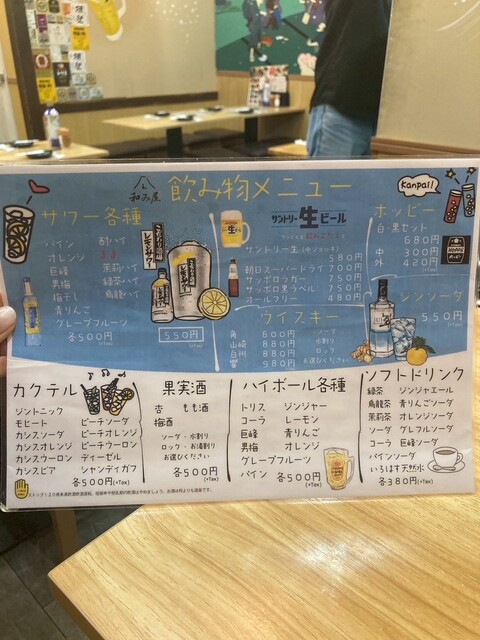 和み屋
飲み物メニュー
Kanpai!
サワー各種
パイン
オレンジ
巨峰
男梅
梅干し
青りんご
グレープフルーツ
各500円
(+Tax)
酎ハイ
茉莉ハイ
緑茶ハイ
烏龍ハイ
レモンサワー
550円
(+Tax)
サントリー生ビール
サントリー生(中ジョッキ)
580円
朝日スーパードライ 700円
サッポロラガー 750円
サッポロ黒ラベル 750円
オールフリー 480円
ウイスキー
角 600円
山崎 880円
白州 880円
響 980円
ソーダ
水割り
ロック
お選びください
ホッピー
白・黒セット
680円
中 300円
外 420円
(+Tax)
ジンソーダ
550円
(+Tax)
カクテル
ジントニック
モヒート
カシスソーダ
カシスオレンジ
カシスウーロン
カシスビア
ピーチソーダ
ピーチオレンジ
ピーチウーロン
ディーゼル
シャンディガフ
各500円(+Tax)
果実酒
杏 もも酒
梅酒
ソーダ・水割り
ロック・お湯割り
お選びください
各500円
(+Tax)
ハイボール各種
トリス ジンジャー
コーラ レーモン
巨峰 青りんご
男梅 オレンジ
グレープフルーツ
パイン 各500円
(+Tax)
ソフトドリンク
緑茶 ジンジャエール
烏龍茶 青りんごソーダ
茉莉茶 オレンジソーダ
ソーダ グレフルソーダ
コーラ 巨峰ソーダ
パインソーダ
いろはす天然水
各380円(+Tax)